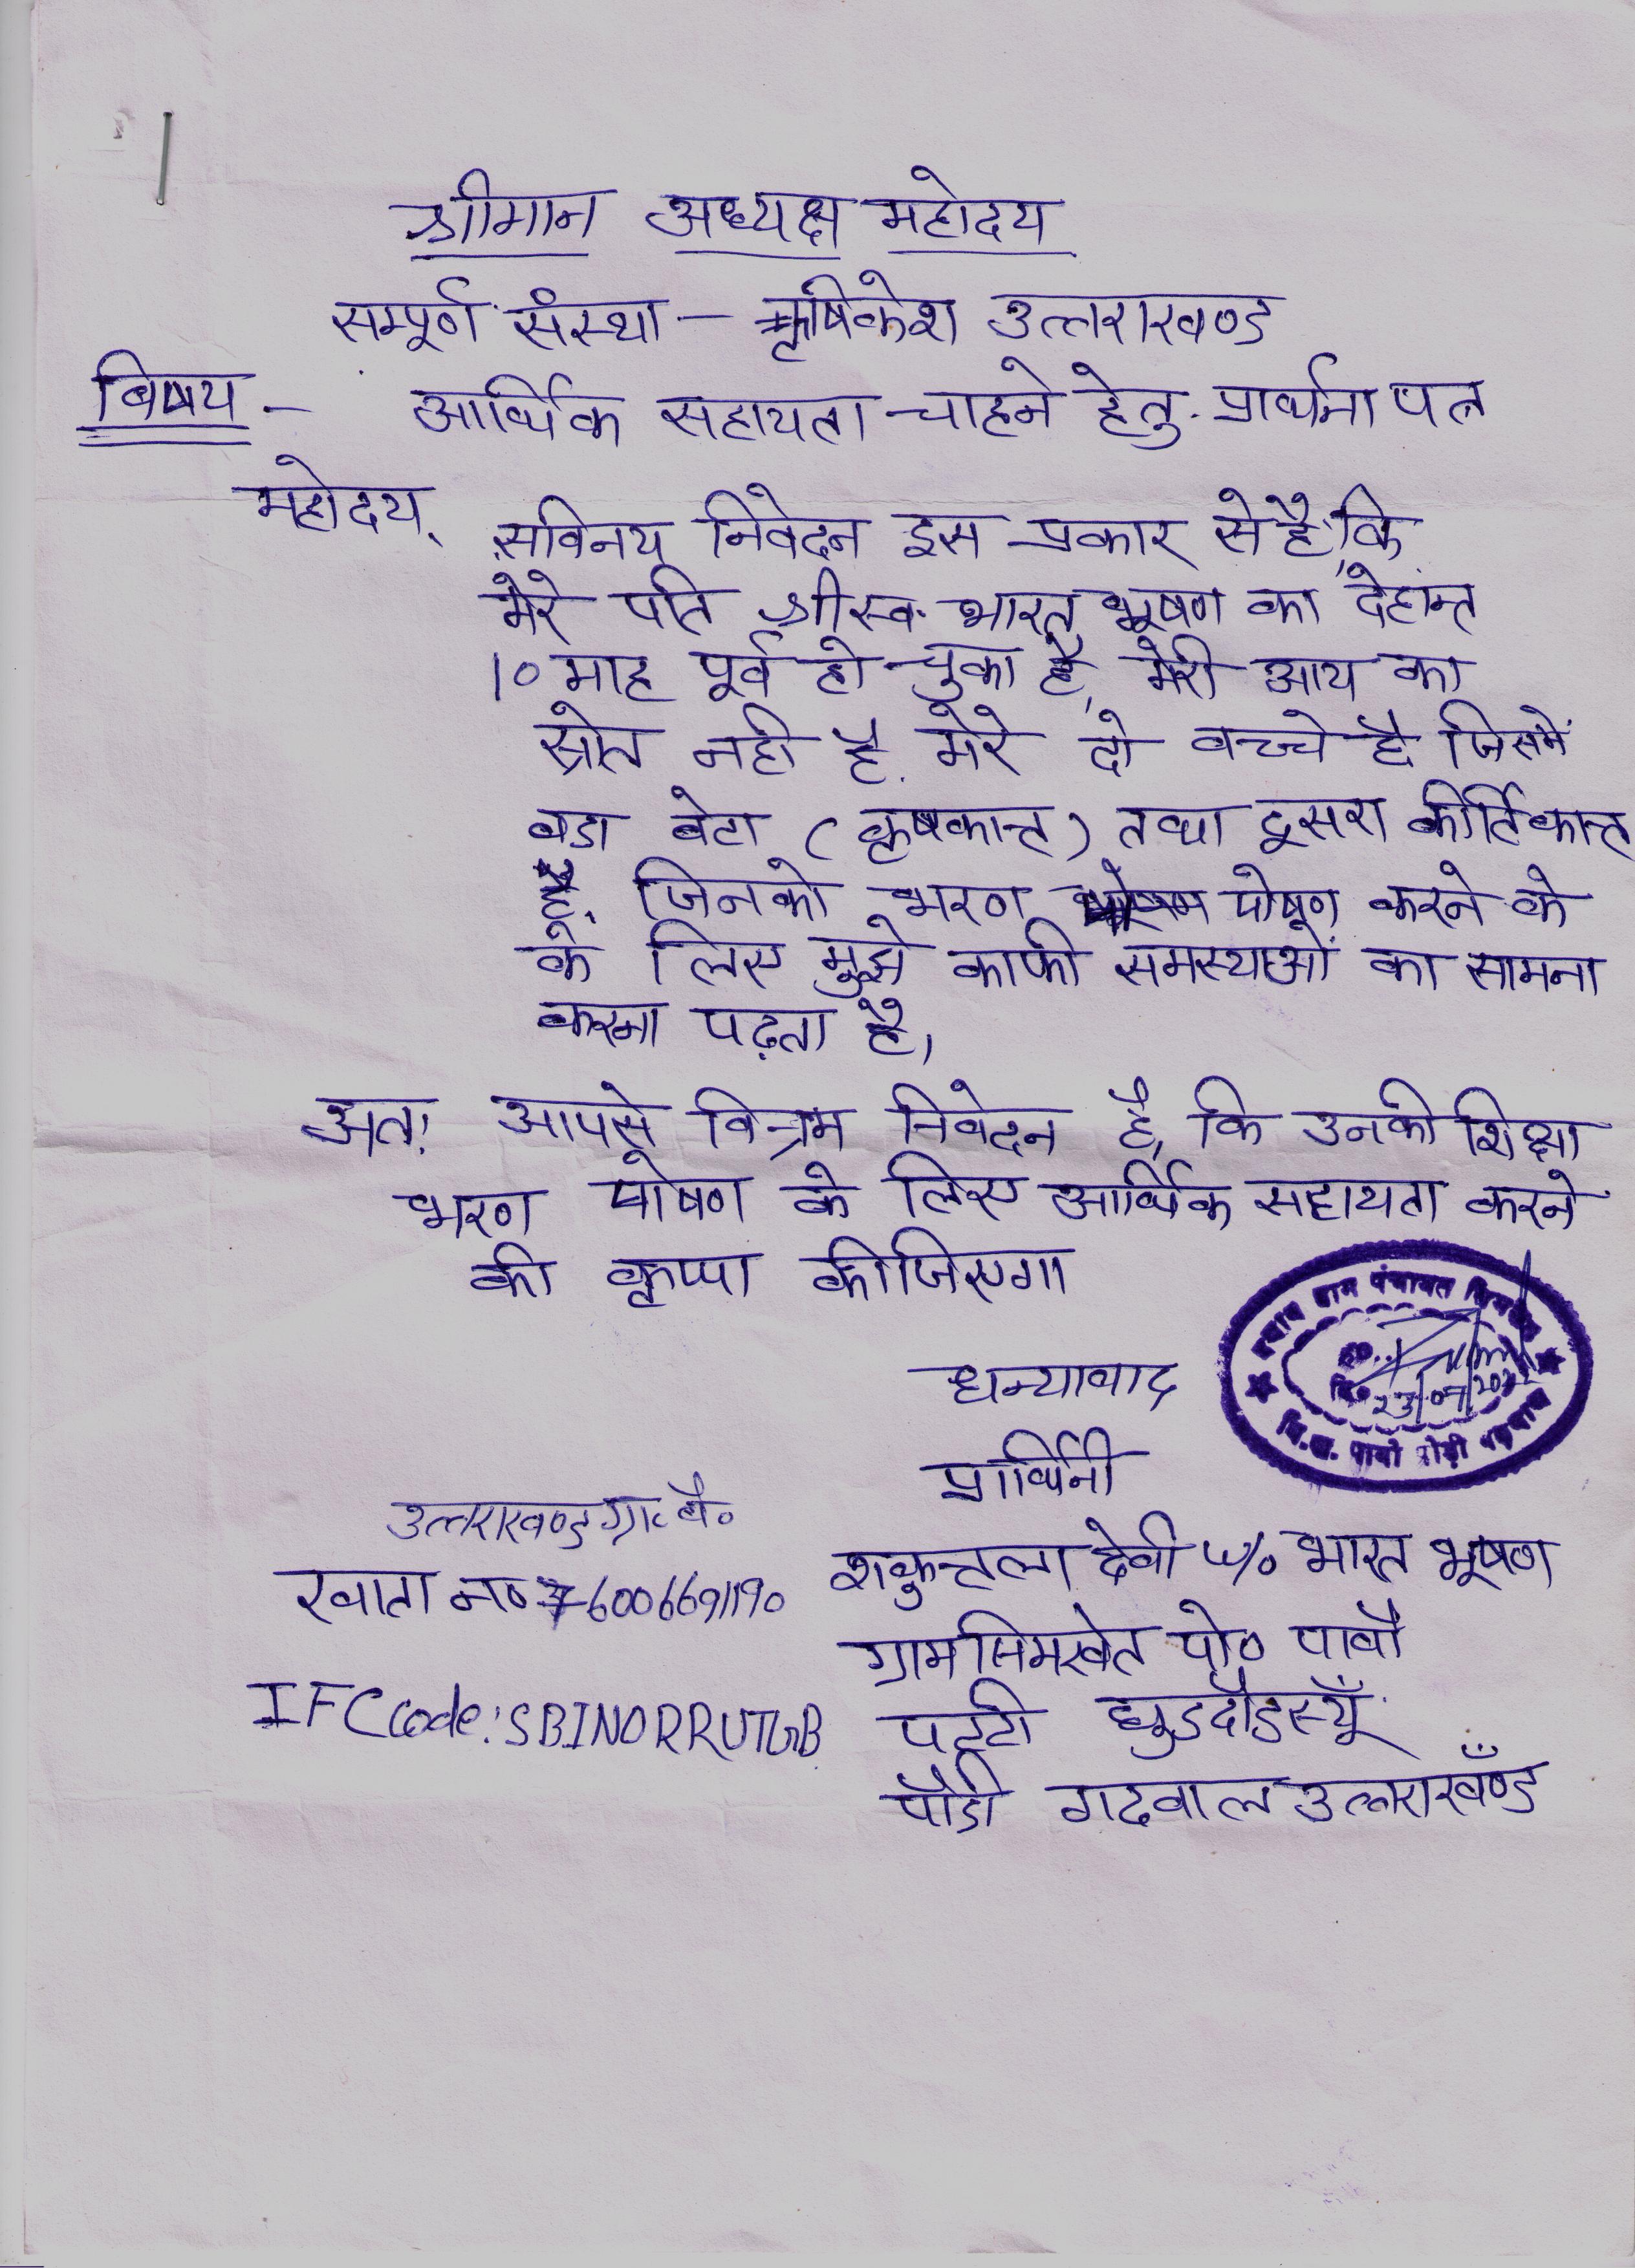 श्रीमान अध्यक्ष महोदय
सम्पूर्ण संस्था - ऋषिकेश उत्तराखण्ड
विषय - आर्थिक सहायता चाहने हेतु प्रार्थना पत्र
महोदय,
सविनय निवेदन इस प्रकार से है, कि
मेरे पति श्री स्व. भारत भूषण का देहान्त
10 माह पूर्व हो चुका है, मेरी आय का
स्रोत नही है. मेरे दो बच्चे है जिसमें
बडा बेटा (कृषकान्त) तथा दूसरा कीर्तिकान्त
है, जिनको भरण पोषण करने के
के लिए मुझे काफी समस्याओं का सामना
करना पढ़ता है,
अतः आपसे विनम्र निवेदन है, कि उनकी शिक्षा
भरण पोषण के लिए आर्थिक सहायता करने
की कृपा कीजिएगा
धन्यावाद
प्रधान ग्राम पंचायत
23/07/202
वि.ख. पाबौ पौड़ी गढ़वाल
प्रार्थिनी
उत्तराखण्ड ग्रा. बै०
शकुन्तला देवी w/o भारत भूषण
खाता न० 76006691190
ग्राम सिमखेत पो० पाबौ
IFC Code: SBIN0RRUTGB
पट्टी घुडदौडस्यूँ
पौडी गढवाल उत्तराखँण्ड